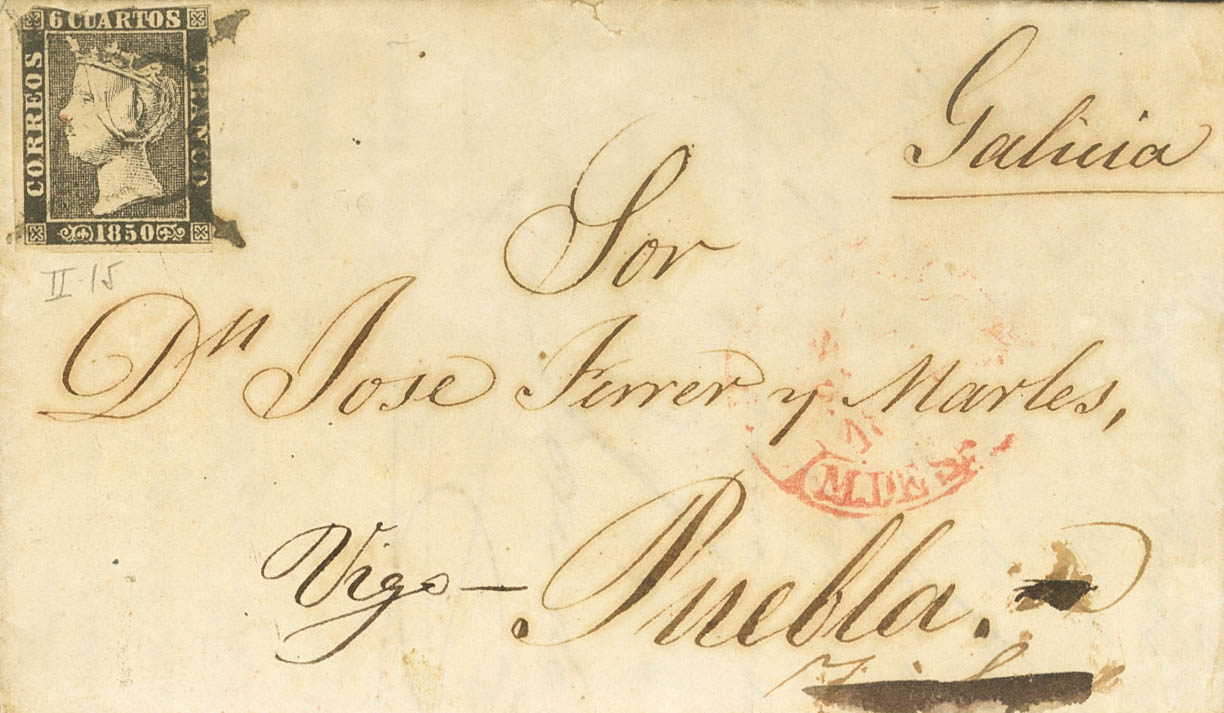 6 CUARTOS
CORREOS
FRANCO
1850
II-15
Galicia
Sor
Dn Jose Ferrer y Marles,
M.DE
Vigo – Puebla.